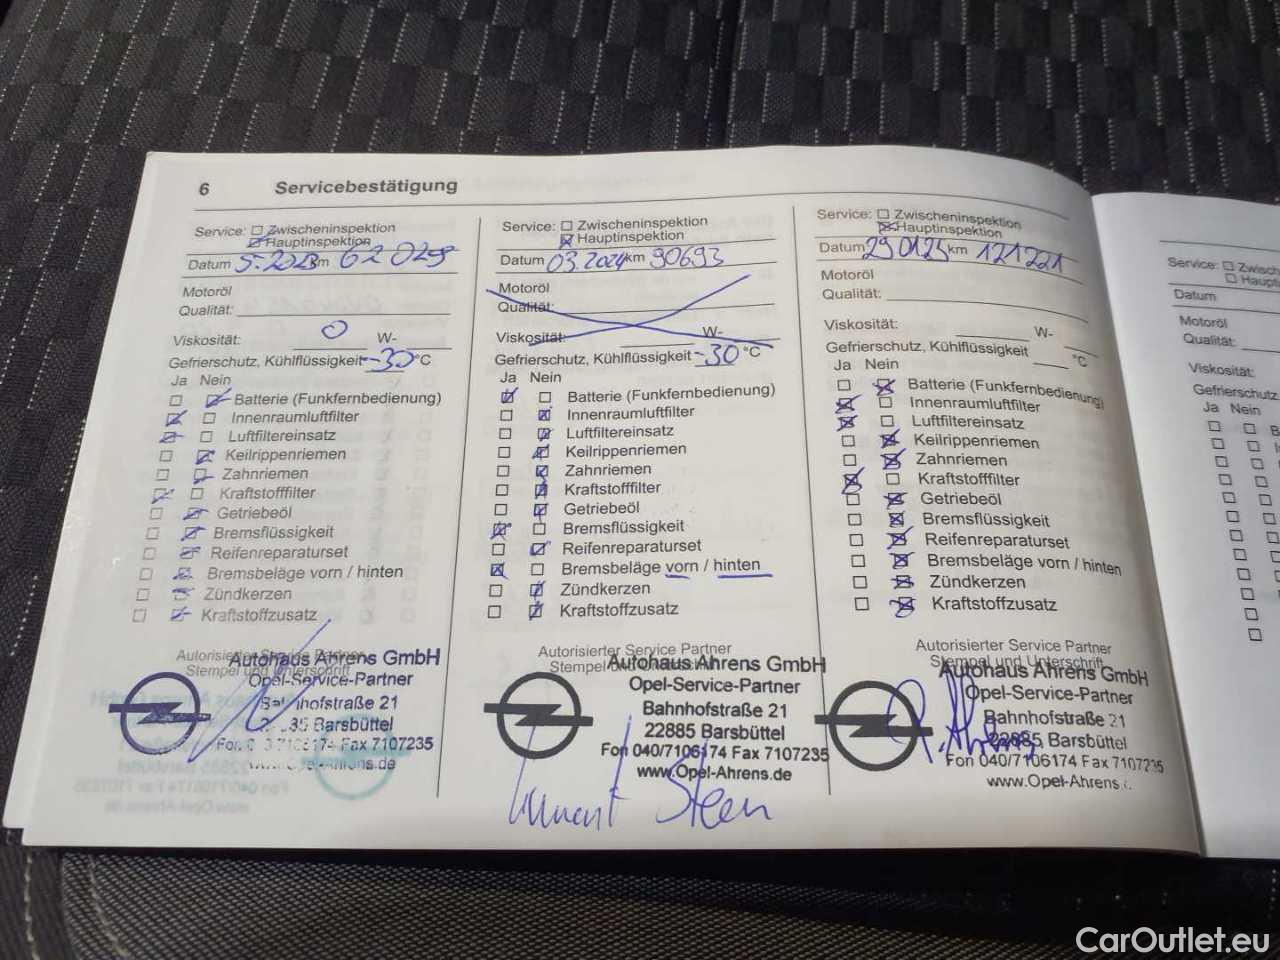 6 Servicebestätigung
Service: Zwischeninspektion
Hauptinspektion
Datum 5.2023 km 62029
Motoröl
Qualität:
Viskosität: 0 W-
Gefrierschutz, Kühlflüssigkeit -30 °C
Ja Nein
Batterie (Funkfernbedienung)
Innenraumluftfilter
Luftfiltereinsatz
Keilrippenriemen
Zahnriemen
Kraftstofffilter
Getriebeöl
Bremsflüssigkeit
Reifenreparaturset
Bremsbeläge vorn / hinten
Zündkerzen
Kraftstoffzusatz
Autorisierter Service Partner
Stempel und Unterschrift
Autohaus Ahrens GmbH
Opel-Service-Partner
Bahnhofstraße 21
35 Barsbüttel
Fon 0 7106174 Fax 7107235
Ahrens.de
Service: Zwischeninspektion
Hauptinspektion
Datum 03.2024 km 90693
Motoröl
Qualität:
Viskosität: W-
Gefrierschutz, Kühlflüssigkeit -30 °C
Ja Nein
Batterie (Funkfernbedienung)
Innenraumluftfilter
Luftfiltereinsatz
Keilrippenriemen
Zahnriemen
Kraftstofffilter
Getriebeöl
Bremsflüssigkeit
Reifenreparaturset
Bremsbeläge vorn / hinten
Zündkerzen
Kraftstoffzusatz
Autorisierter Service Partner
Stempel und
Autohaus Ahrens GmbH
Opel-Service-Partner
Bahnhofstraße 21
22885 Barsbüttel
Fon 040/7106174 Fax 7107235
www.Opel-Ahrens.de
Service: Zwischeninspektion
Hauptinspektion
Datum km 121221
Motoröl
Qualität:
Viskosität: W-
Gefrierschutz, Kühlflüssigkeit °C
Ja Nein
Batterie (Funkfernbedienung)
Innenraumluftfilter
Luftfiltereinsatz
Keilrippenriemen
Zahnriemen
Kraftstofffilter
Getriebeöl
Bremsflüssigkeit
Reifenreparaturset
Bremsbeläge vorn / hinten
Zündkerzen
Kraftstoffzusatz
Autorisierter Service Partner
Stempel und Unterschrift
Autohaus Ahrens GmbH
Opel-Service-Partner
Bahnhofstraße 21
22885 Barsbüttel
Fon 040/7106174 Fax 7107235
www.Opel-Ahrens.
Service: Zwisc
Hauptin
Datum
Motoröl
Qualität:
Viskosität:
Gefrierschutz
Ja Nein
CarOutlet.eu